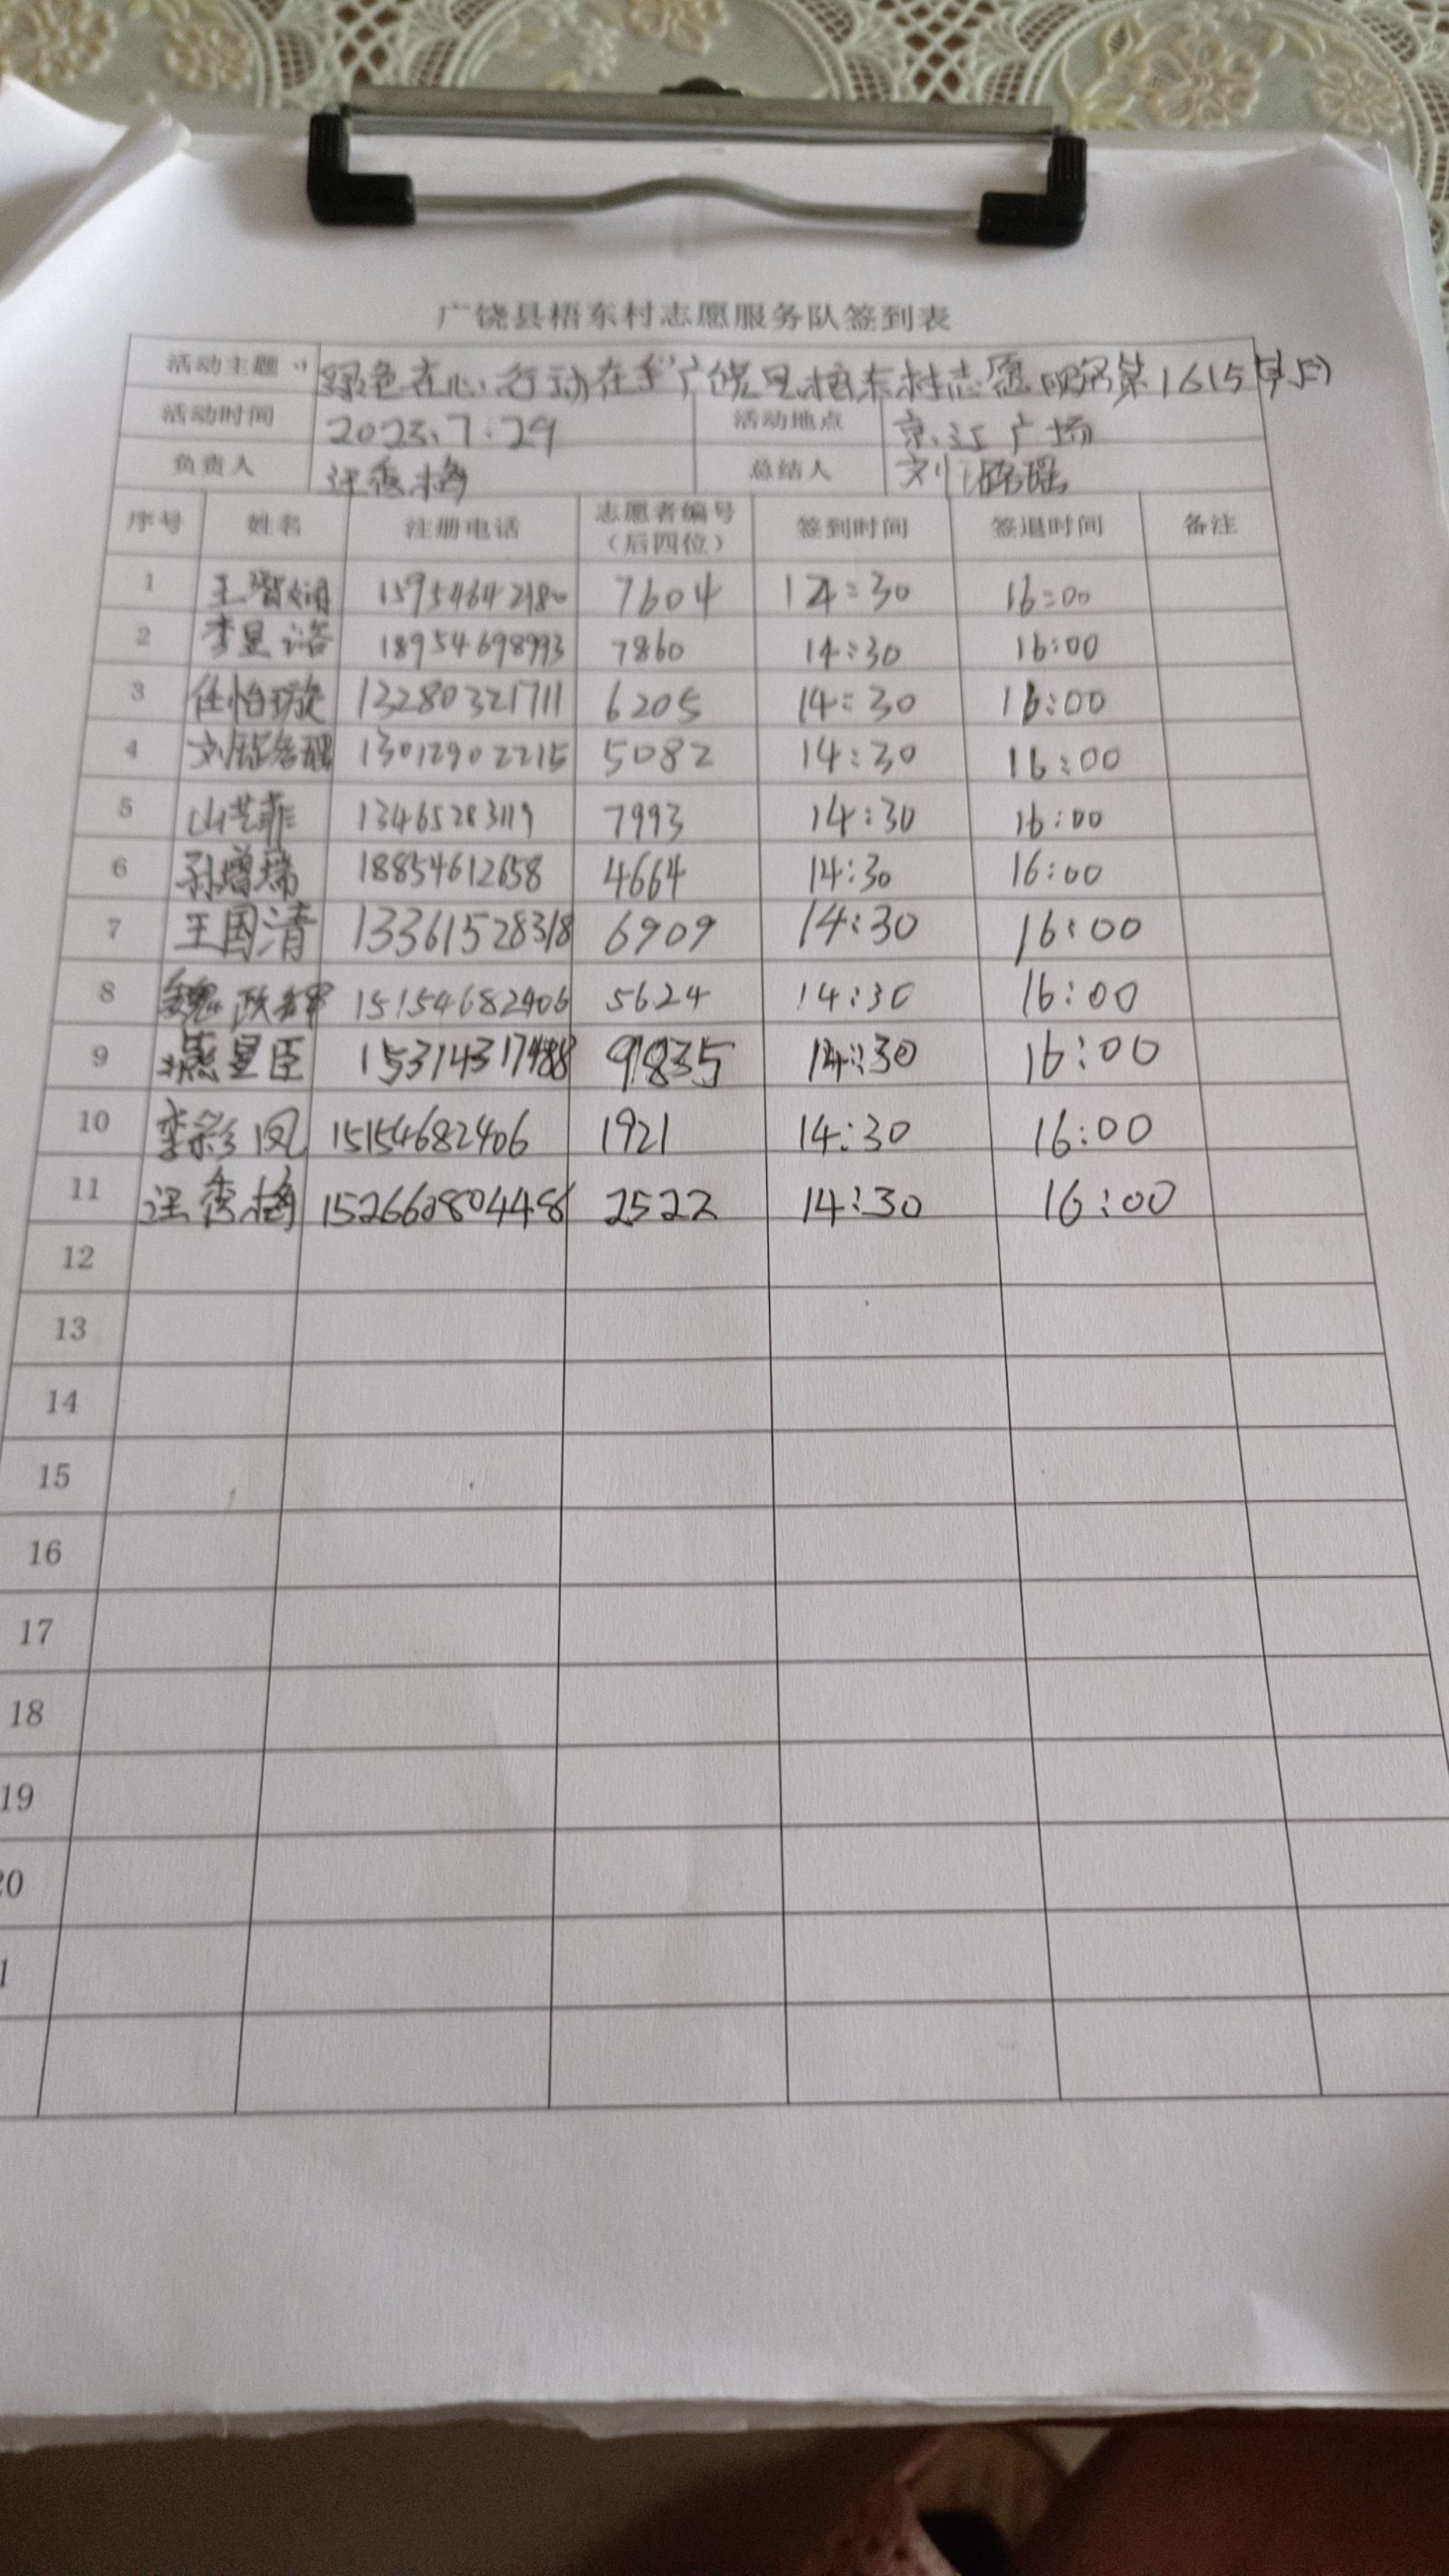 广饶县梧东村志愿服务队签到表
活动主题 绿色在心,行动在手"广饶县梧东村志愿服务第1615
活动时间 2023.7.29 活动地点 广场
负责人 汪秀梅 总结人 刘铭瑶
序号 姓名 注册电话 志愿者编号(后四位) 签到时间 签退时间 备注
1 王 15954642180 7604 14:30 16:00
2 李昱 18954698993 7860 14:30 16:00
3 任怡璇 13280321711 6205 14:30 16:00
4 刘铭瑶 13012902215 5082 14:30 16:00
5 山芝菲 1346528 7993 14:30 16:00
6 孙增瑞 18854612658 4664 14:30 16:00
7 王国清 13361528318 6909 14:30 16:00
8 魏政 15154682406 5624 14:30 16:00
9 燕昱臣 15314317488 9835 14:30 16:00
10 李彩凤 15154682406 1921 14:30 16:00
11 汪秀梅 2522 14:30 16:00
12
13
14
15
16
17
18
19
20
1